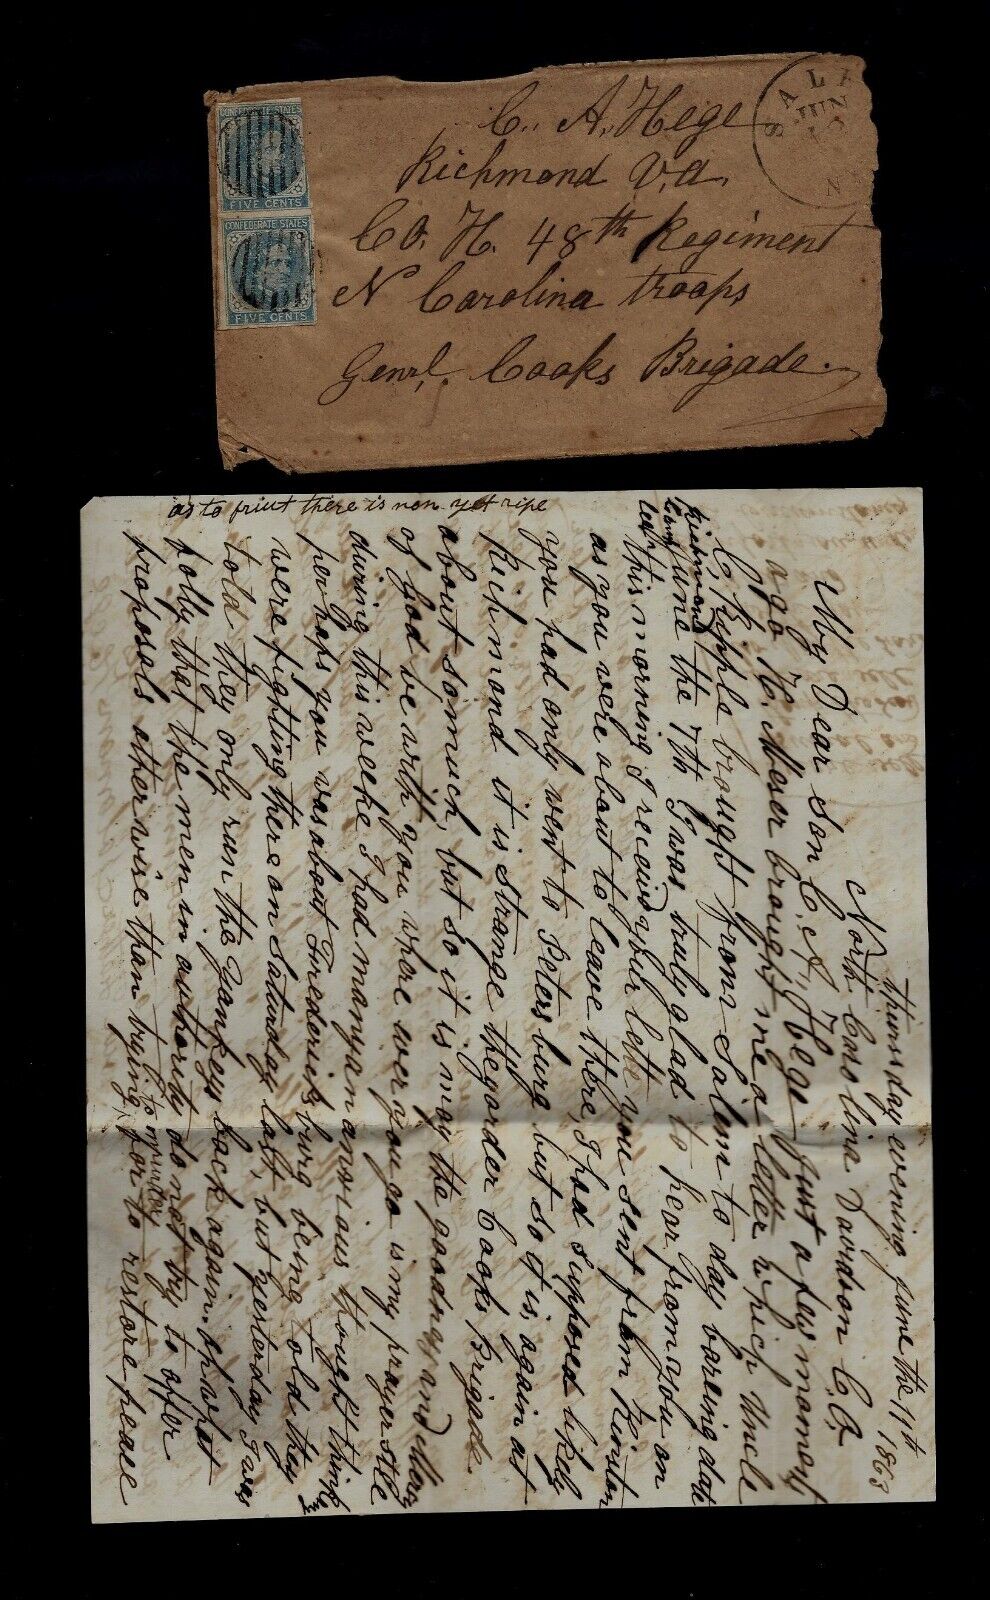 CONFEDERATE STATES
FIVE CENTS
CONFEDERATE STATES
FIVE CENTS
SALE
JUN
C. A. Hege
Richmond Va.
CO. H. 48th Regiment
N Carolina troops
Genrl. Cooks Brigade.
as to friut there is non yet ripe
thursday evening June the 11th 1863
North Carolina Davidson C.o
My Dear Son C. A, Hege Just a few moments
ago H. Meser brought me a letter which Uncle
C Ripple brought from Salem to day baring date
Richmond June the 7th I was truly glad to hear from you on
this morning I receivd your lette you sent from Kinston
as you were about to leave there, I had supposed likely
you had only went to Petersburg but so it is, again at
Richmond it is strange they order Cooks Brigade
about so much, but so it is may the goodness and Mercy
of God be with you where ever you go is my prayer still
during this weeke I had many an anxious thought think
per haps you was about Fredericksburg being told they
were fighting there on Saturday last, but yesterday I was
told they only run the Yankeys back again. o what
folly that the men in authority do not try to offer
proposals otherwise than trying to murter for to restore peace